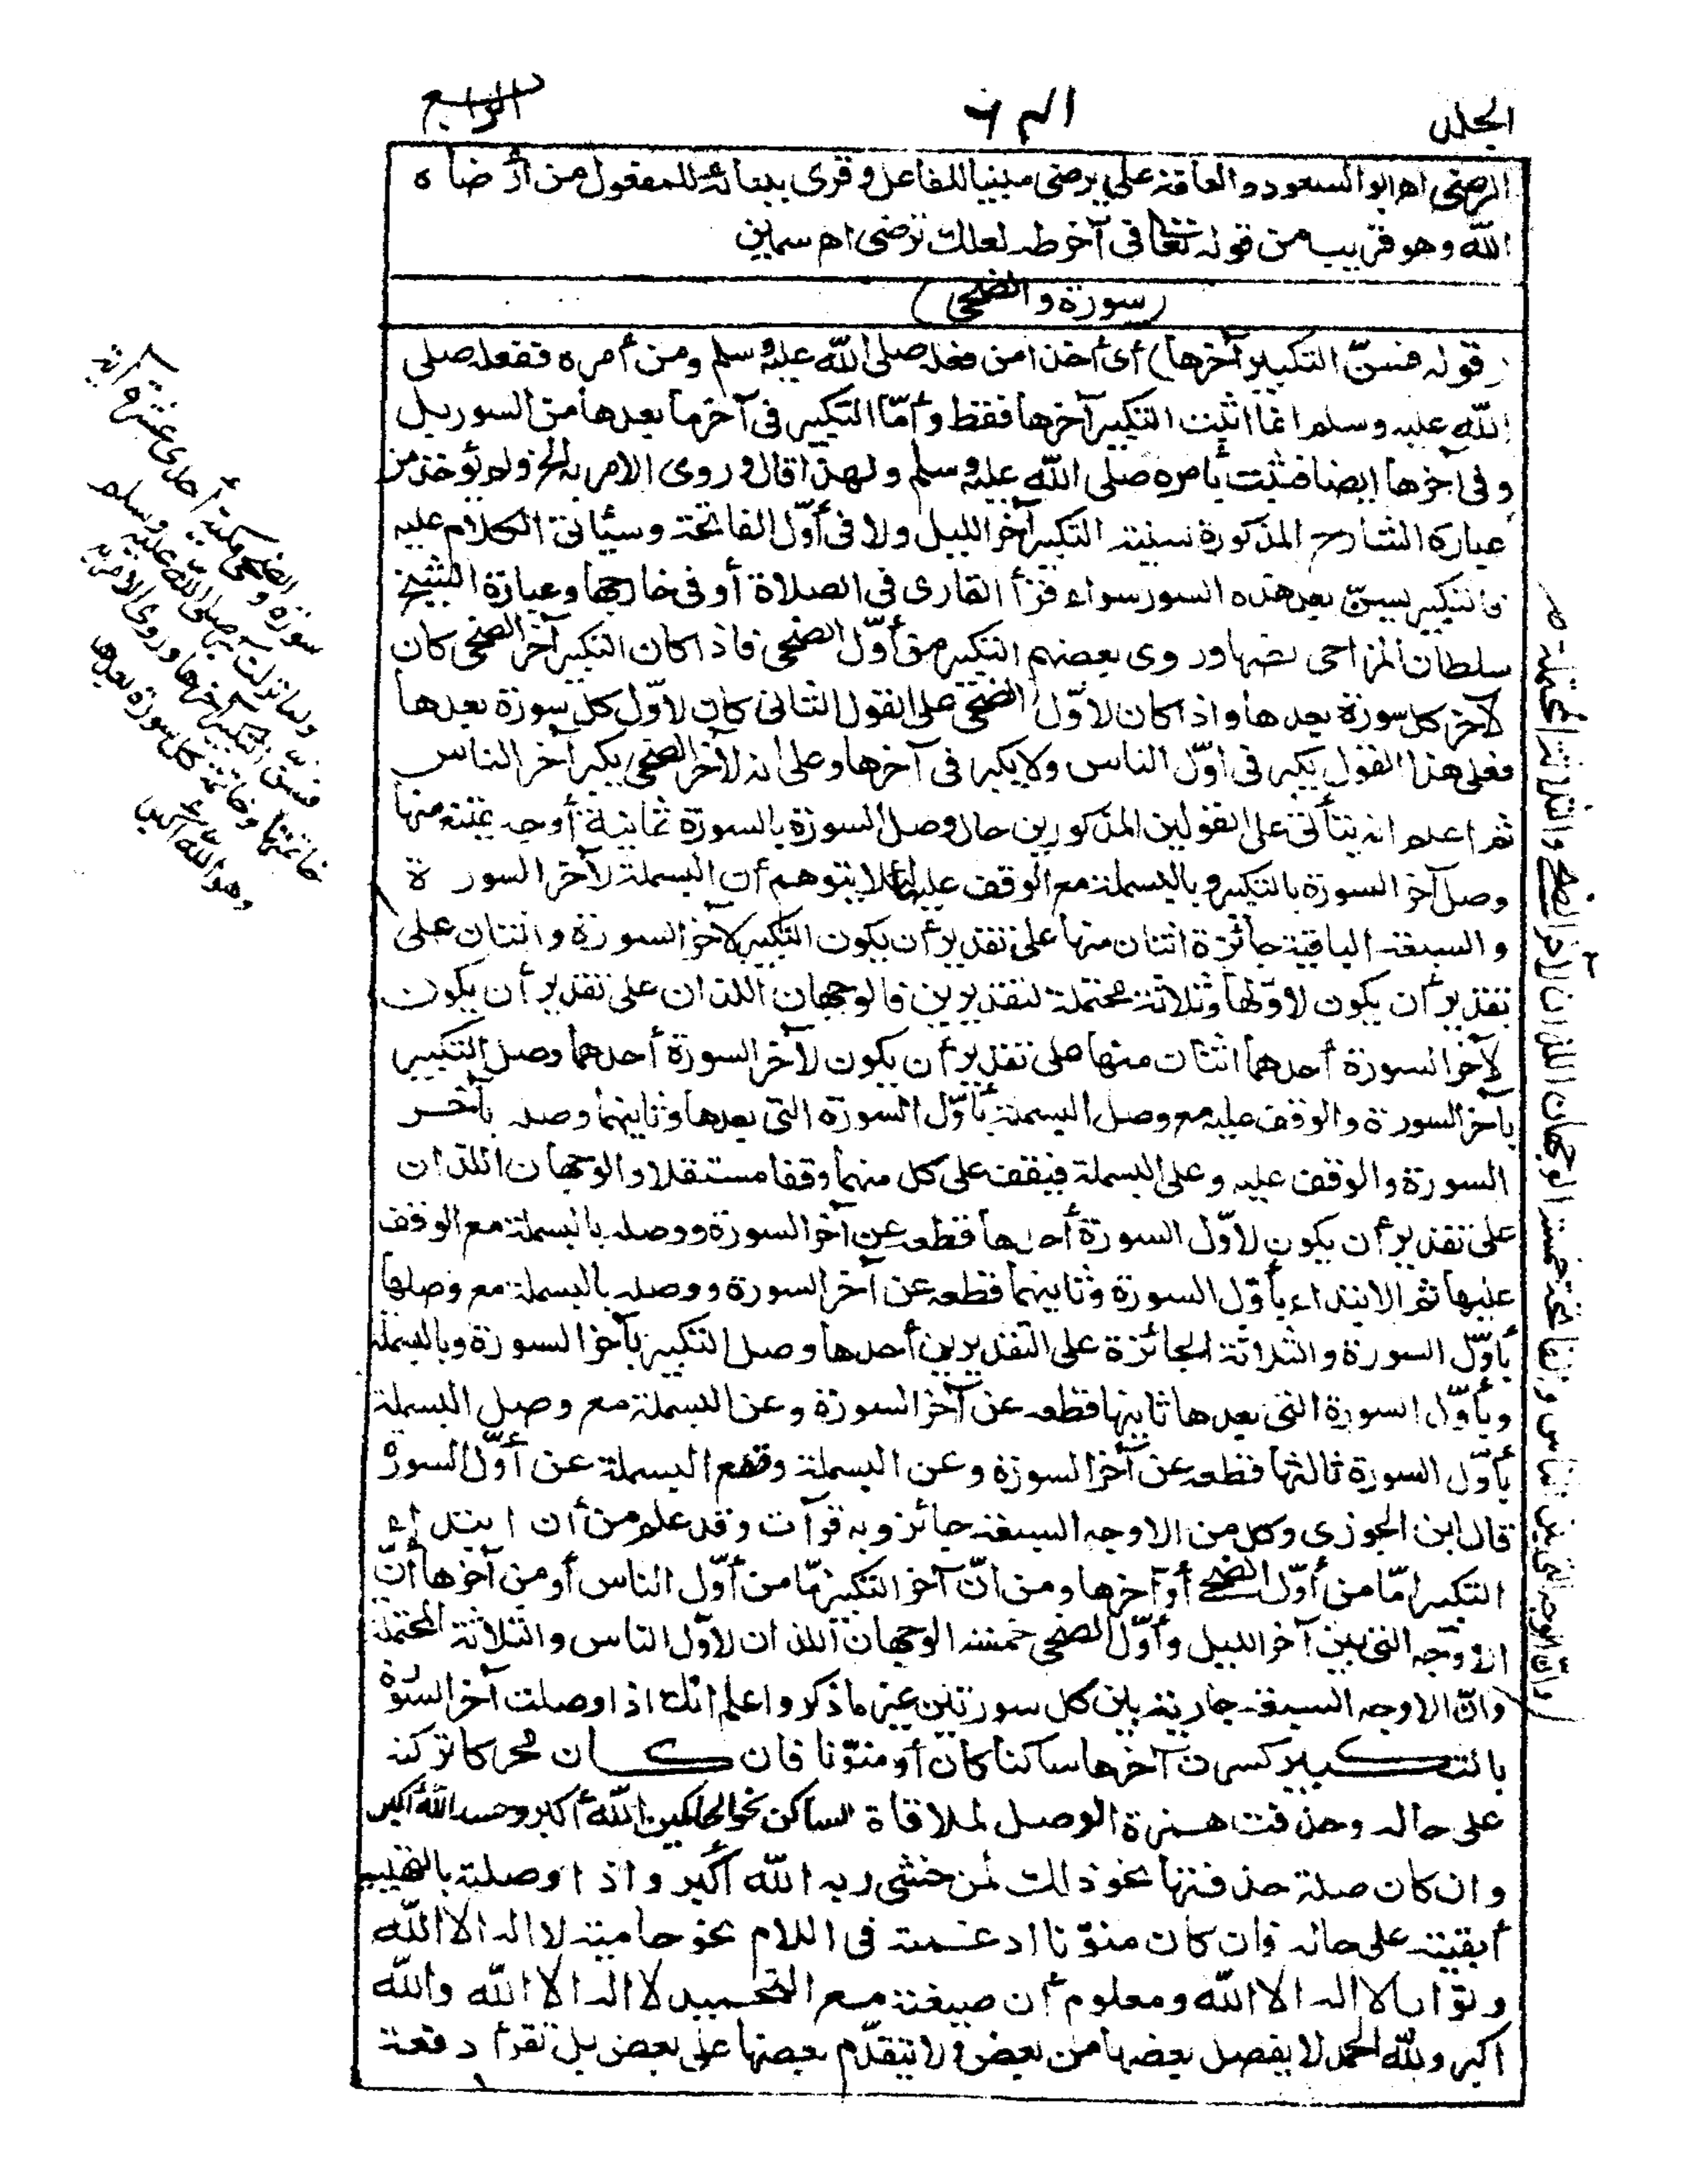 الجلد
الرابع
الرضى اه ابو السعود والعاقة على يرضى مبنيا للفاعل وقرئ ببنائه للمفعول من أرضاه
الله وهو قريب من قوله تعالى فى آخر طه لعلك ترضى اه سمين
(سورة والضحى)
(قوله فسنّ التكبير آخرها) أى أخذا من فعله صلى الله عليه وسلم ومن أمره ففعله صلى
الله عليه وسلم انما اثبت التكبير آخرها فقط وأمّا التكبير فى آخر ما بعدها من السور بل
وفى آخرها ايضا فثبت بأمره صلى الله عليه وسلم ولهذا قال وروى الامر به الخ ولم يؤخذ من
عبارة الشارح المذكورة سنية التكبير آخر الليل ولا فى أوّل الفاتحة وسيأتى الكلام عليه
فالتكبير يسنّ بعد هذه السور سواء قرأ القارى فى الصلاة أو فى خارجها وعبارة الشيخ
سلطان المزاحى نصها وروى بعضهم التكبير من أوّل الضحى فاذا كان التكبير آخر الضحى كان
لآخر كل سورة بعدها واذا كان لأوّل الضحى على القول الثانى كان لأوّل كل سورة بعدها
فعلى هذا القول يكبر فى اوّل الناس ولا يكبر فى آخرها وعلى انه لآخر الضحى يكبر آخر الناس
ثم اعلم انه يتأتى على القولين المذكورين حال وصل السورة بالسورة ثمانية أوجه يمتنع منها
وصل آخر السورة بالتكبير وبالبسملة مع الوقف عليها لئلا يتوهم أن البسملة لآخر السورة
والسبعة الباقية جائزة اثنتان منها على تقدير أن يكون التكبير لآخر السورة واثنتان على
تقدير أن يكون لأوّلها وثلاثة محتملة لتقديرين فالوجهان اللذان على تقدير أن يكون
لآخر السورة أحدهما اثنتان منها على تقدير أن يكون لآخر السورة أحدهما وصل التكبير
بآخر السورة والوقف عليه مع وصل البسملة بأوّل السورة التى بعدها وثانيهما وصله بآخر
السورة والوقف عليه وعلى البسملة فيقف على كل منهما وقفا مستقلا والوجهان اللذان
على تقدير أن يكون لأوّل السورة أحدها قطعه عن آخر السورة ووصله بالبسملة مع الوقف
عليها ثم الابتداء بأوّل السورة وثانيهما قطعه عن آخر السورة ووصله بالبسملة مع وصلها
بأوّل السورة والثلاثة الجائزة على التقديرين أحدها وصل التكبير بآخر السورة وبالبسملة
وبأوّل السورة التى بعدها ثانيها قطعه عن آخر السورة وعن البسملة مع وصل البسملة
بأوّل السورة ثالثها قطعه عن آخر السورة وعن البسملة وقطع البسملة عن أوّل السورة
قال ابن الجوزى وكل من الاوجه السبعة جائز وبه قرأت وقد علم من أن ابتداء
التكبير امّا من أوّل الضحى أو آخرها ومن انّ آخر التكبير امّا من أوّل الناس أو من آخرها أنّ
الاوجه التى بين آخر الليل وأوّل الضحى خمسة الوجهان اللذان لأوّل الناس والثلاثة المحتملة
وانّ الاوجه السبعة جارية بين كل سورتين غير ما ذكر واعلم انك اذا وصلت آخر السورة
بالتكبير كسرت آخرها ساكنا كان أو منوّنا فان كان محركا تركته
على حاله وحذفت همزة الوصل لملاقاة الساكن نحو الحاكمين الله أكبر وحسد الله أكبر
وان كان صلة حذفتها نحو ذلك لمن خشى ربه الله أكبر واذا وصلته بالتهليل
أبقيته على حاله فان كان منوّنا ادغمته فى اللام نحو حامية لا اله الا الله
وتوّابا لا اله الا الله ومعلوم أن صيغته مع التحميد لا اله الا الله والله
اكبر ولله الحمد لا يفصل بعضها من بعض ولا يتقدّم بعضها على بعض بل تقرأ دفعة
سورة والضحى مكية أحدى عشرة آية
ولما نزلت كبر صلى الله عليه وسلم
فسنّ التكبير آخرها وروى الامر به
خاتمتها وخاتمة كل سورة بعدها
وهو الله أكبر
وانّ الاوجه التى بين الناس والفاتحة خمسة الوجهان اللذان لآخر الضحى والثلاثة المحتملة